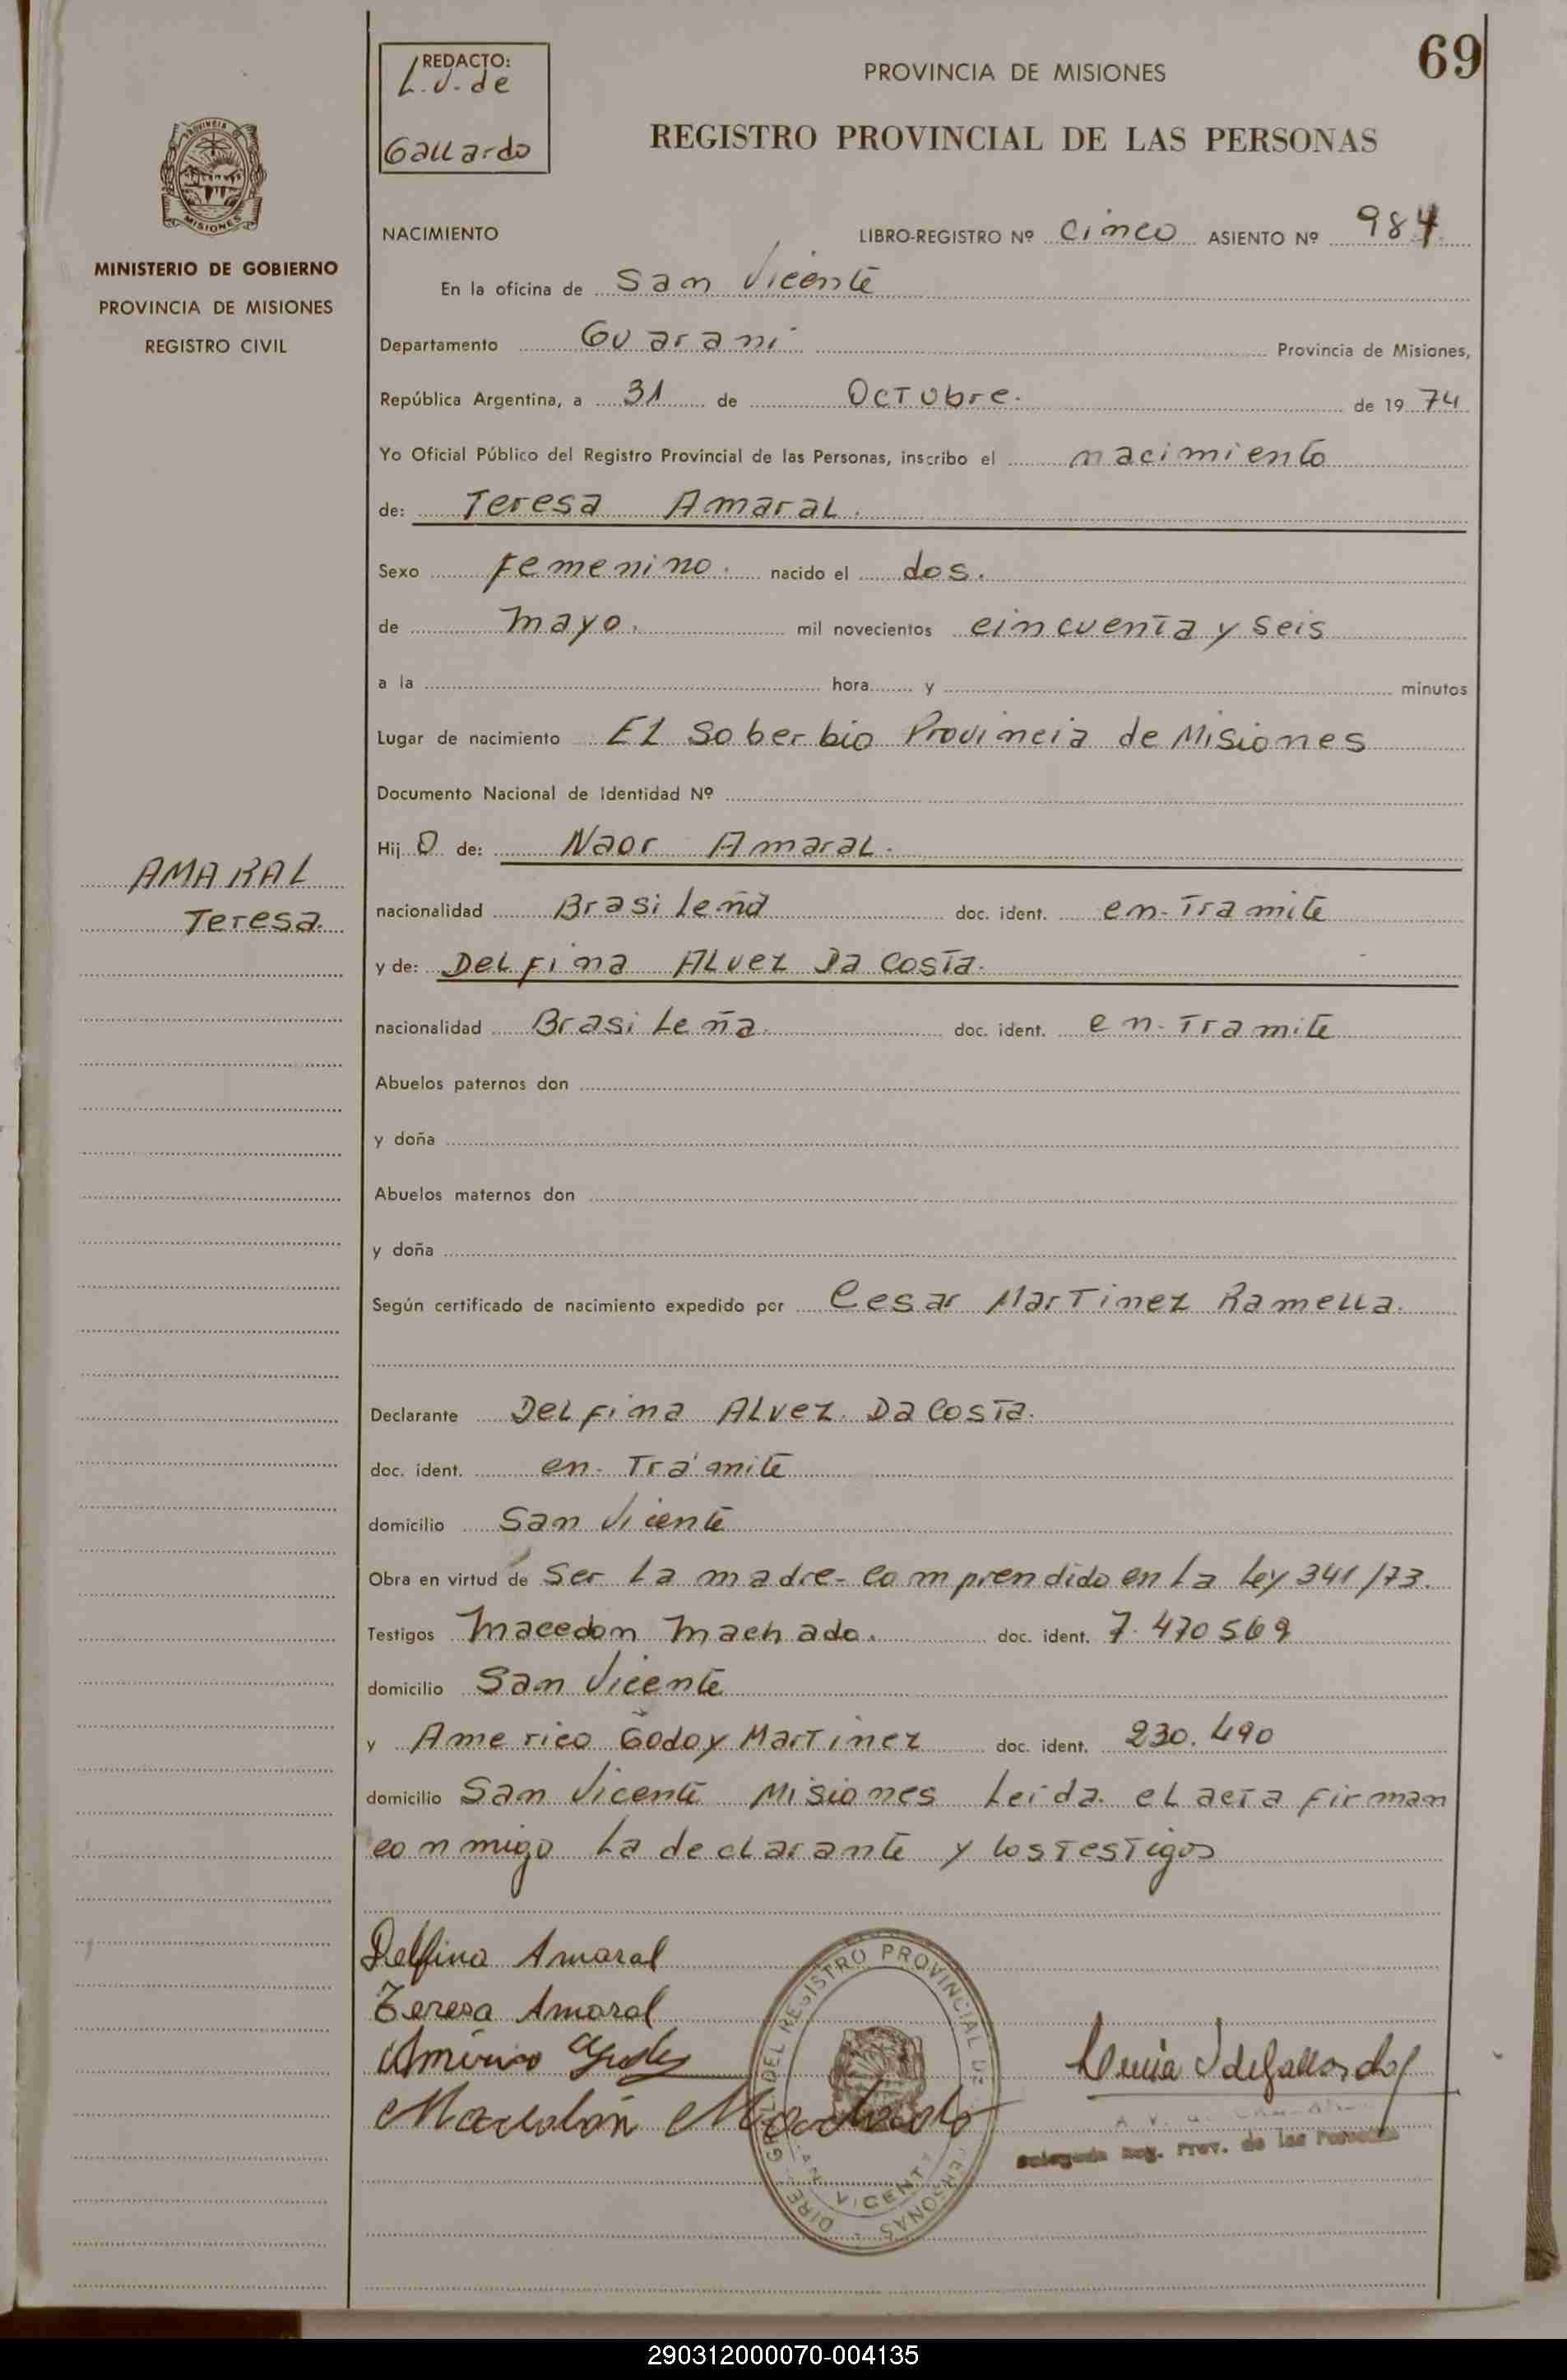 REDACTO:
L.V. de
Gallardo
PROVINCIA DE MISIONES
69
REGISTRO PROVINCIAL DE LAS PERSONAS
PROVINCIA
MISIONES
MINISTERIO DE GOBIERNO
PROVINCIA DE MISIONES
REGISTRO CIVIL
NACIMIENTO LIBRO-REGISTRO Nº Cinco ASIENTO Nº 984
En la oficina de San Vicente
Departamento Guarani Provincia de Misiones,
República Argentina, a 31 de Octubre. de 1974
Yo Oficial Público del Registro Provincial de las Personas, inscribo el nacimiento
de: Teresa Amaral.
Sexo femenino. nacido el dos.
de mayo. mil novecientos cincuenta y seis
a la hora y minutos
Lugar de nacimiento El Soberbio Provincia de Misiones
Documento Nacional de Identidad Nº
Hij O de: Naor Amaral.
AMARAL
Teresa.
nacionalidad Brasileña doc. ident. en-Tramite
y de: Delfina Alvez Da Costa.
nacionalidad Brasileña. doc. ident. en-Tramite
Abuelos paternos don
y doña
Abuelos maternos don
y doña
Según certificado de nacimiento expedido por Cesar Martinez Ramella.
Declarante Delfina Alvez Da Costa.
doc. ident. en-Trámite
domicilio San Vicente
Obra en virtud de ser la madre-comprendido en la Ley 341/73.
Testigos Macedon Machado. doc. ident. 7.470569
domicilio San Vicente
y Americo Godoy Martinez doc. ident. 230.490
domicilio San Vicente Misiones Leida el acta firman
conmigo la declarante y los testigos
Delfina Amaral
Teresa Amaral
Américo Godoy
Macedón Machado
DIRE. GRAL. DEL REGISTRO PROVINCIAL DE PERSONAS
SAN VICENTE
Lucia V de Gallardo
Delegada Reg. Prov. de las Personas
290312000070-004135